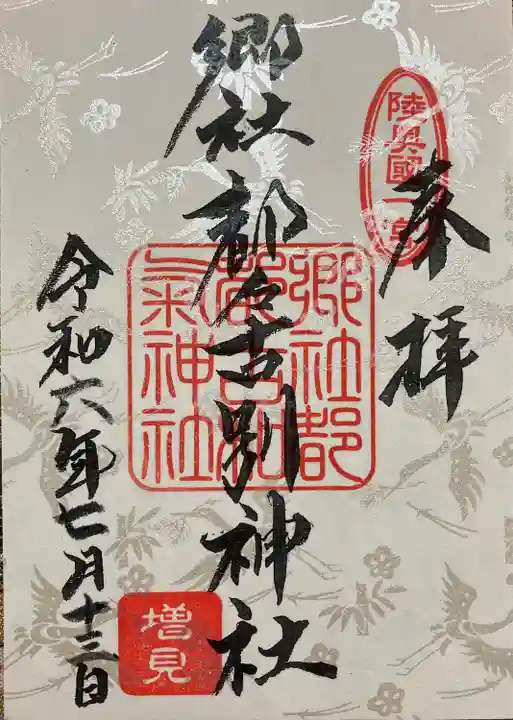 陸奥國一宮
奉拝
郷社 都々古別神社
郷社都
都々古和
氣神社
令和六年七月十三日
増見